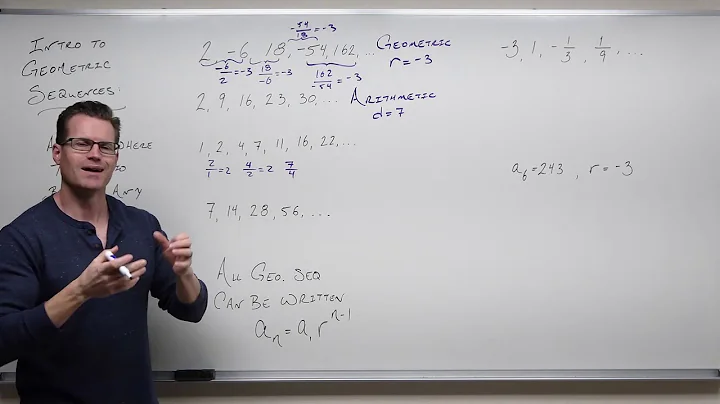 INTRO TO
GEOMETRIC
SEQUENCES:
-54/18 = -3
2, -6, 18, -54, 162, ...
GEOMETRIC
r = -3
-6/2 = -3 18/-6 = -3 162/-54 = -3
2, 9, 16, 23, 30, ...
ARITHMETIC
d = 7
1, 2, 4, 7, 11, 16, 22, ...
2/1 = 2 4/2 = 2 7/4
7, 14, 28, 56, ...
ALL GEO. SEQ
CAN BE WRITTEN
aₙ = a₁ rⁿ⁻¹
-3, 1, -1/3, 1/9, ...
a₆ = 243, r = -3